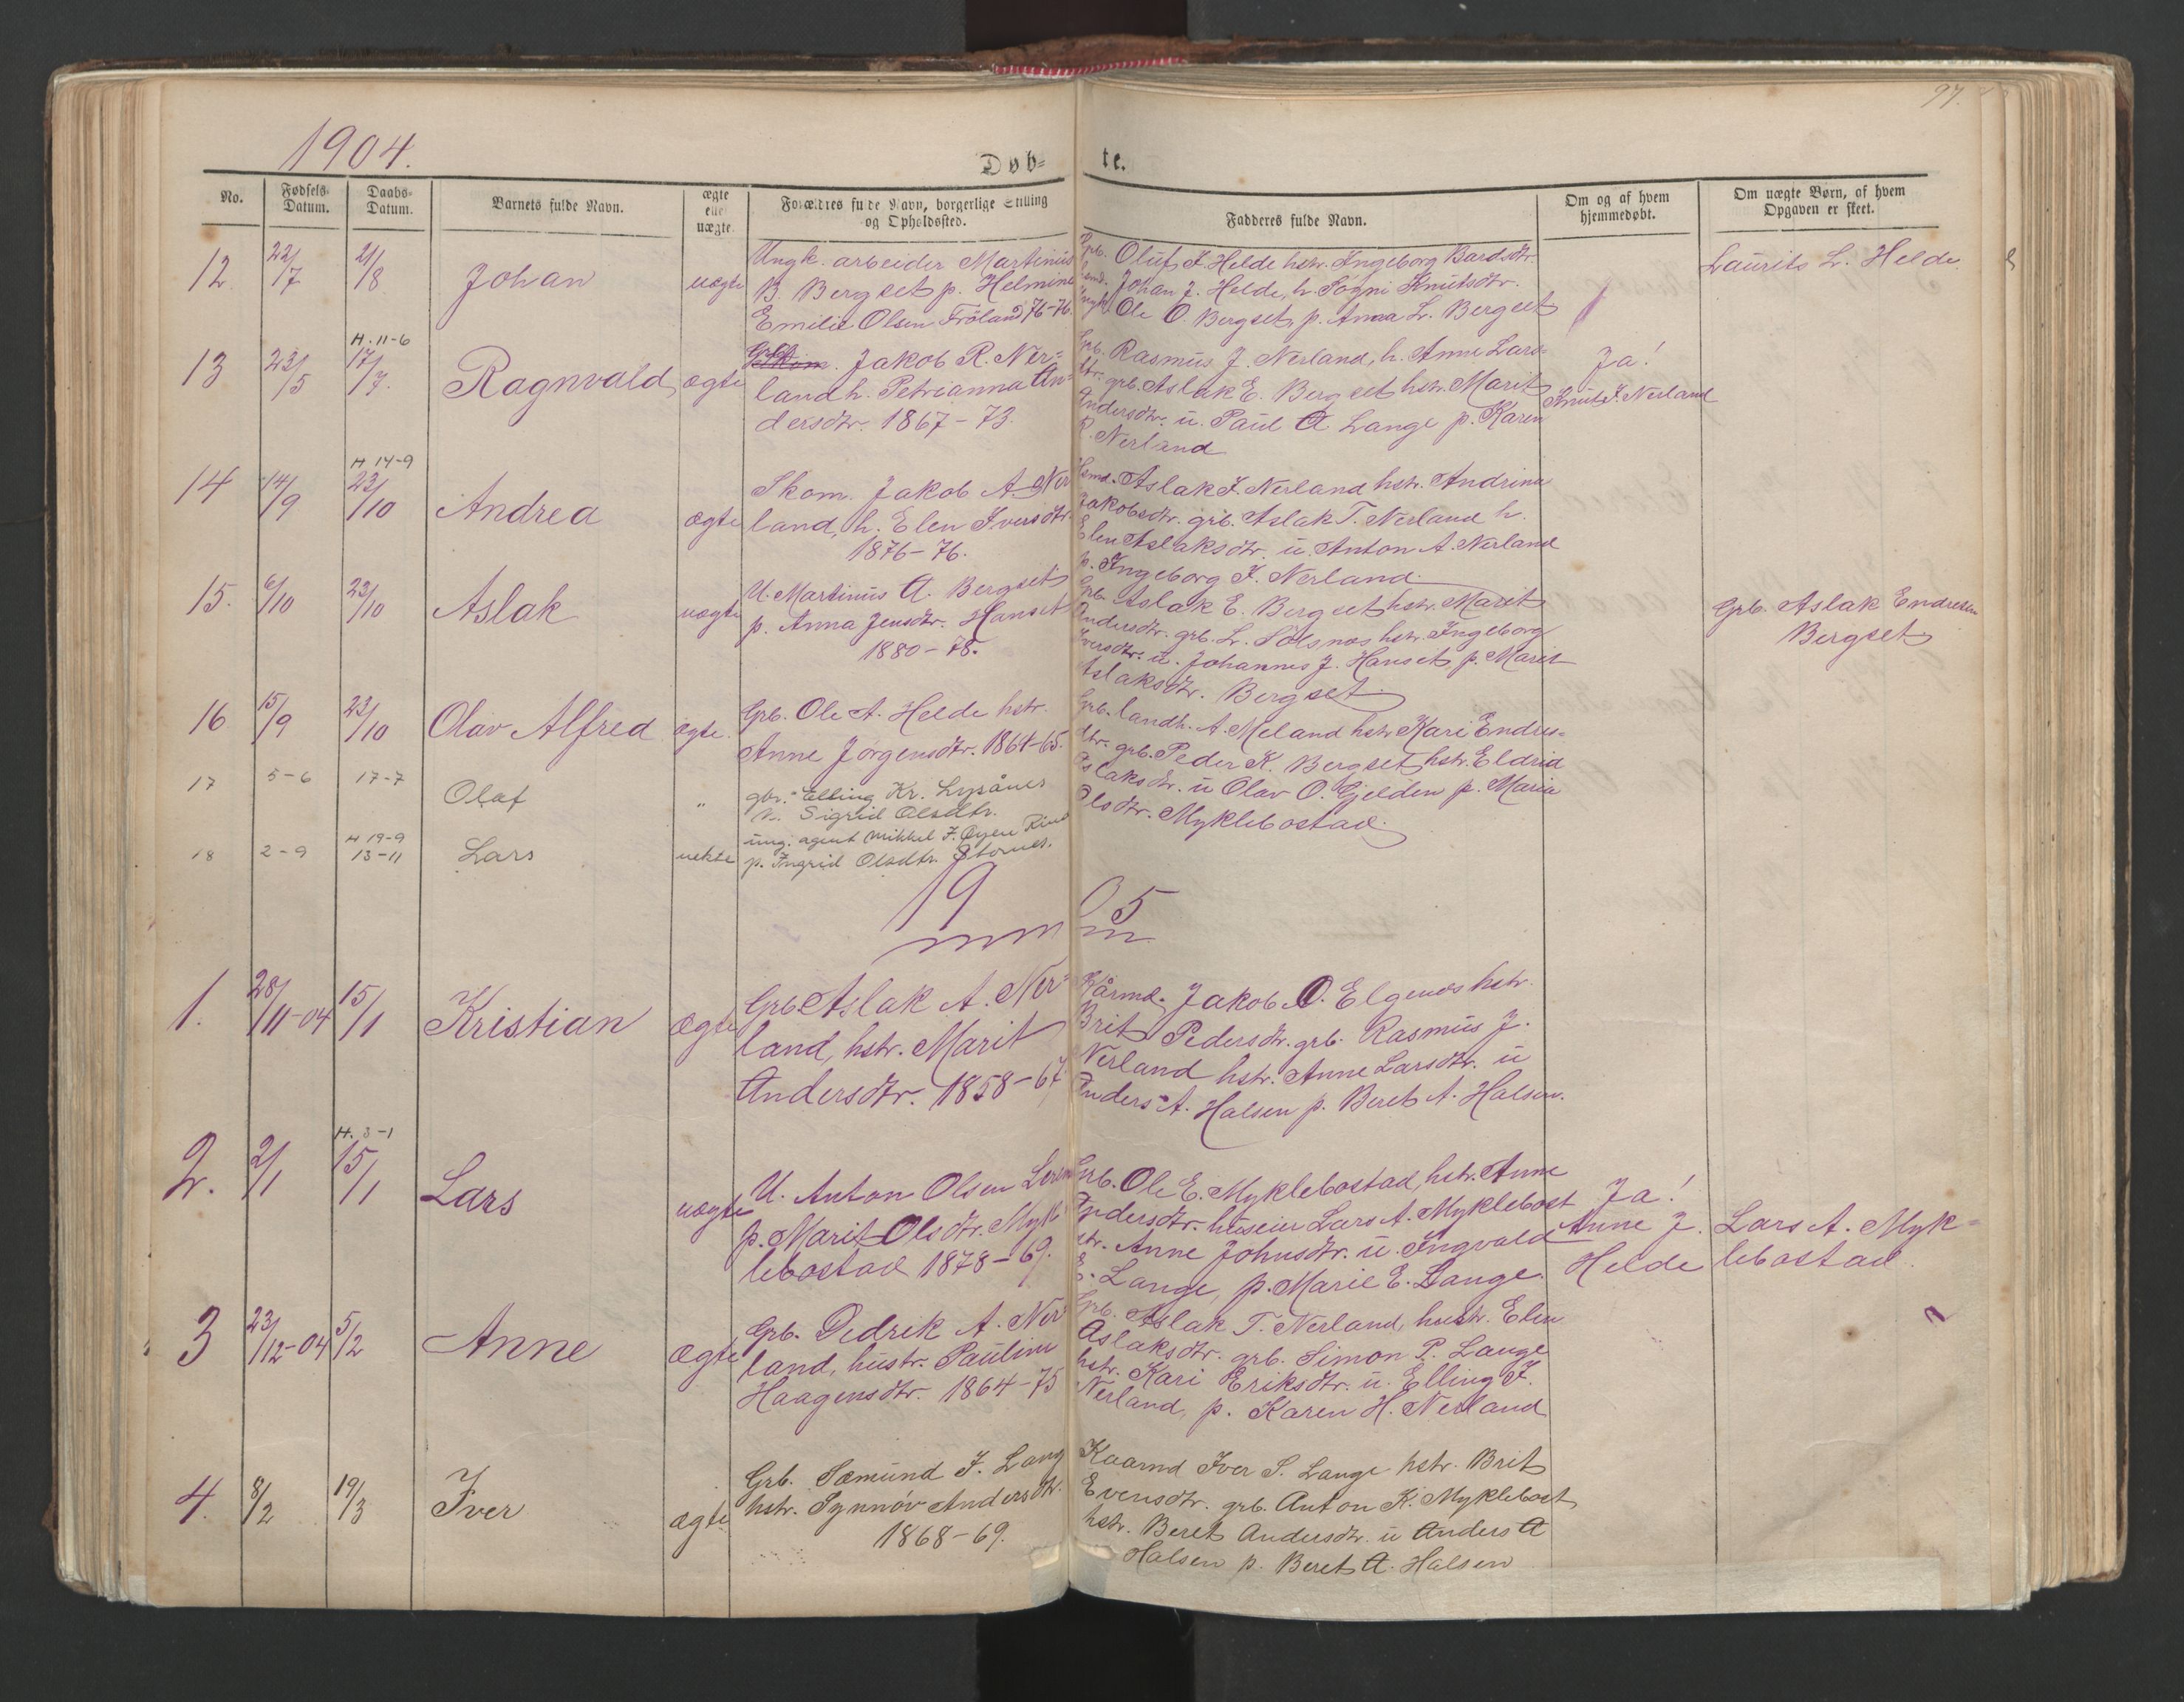 97.
1904.
Døb= te.
No.
Fødsels-
Datum.
Daabs-
Datum.
Barnets fulde Navn.
ægte
eller
uægte
Forældres fulde Navn, borgerlige Stilling
og Opholdssted.
Fadderes fulde Navn.
Om og af hvem
hjemmedøbt.
Om uægte Børn, af hvem
Opgaven er skeet.
12. 22/7 21/8 Johan uægte
Ungk. arbeider Martinus
B. Bergset p. Helmine
Emilie Olsen Fröland 76-76.
Grb. Oluf I. Helde hstr. Ingeborg Bardsdtr.
Johan J. Helde, h. Sögni Knutsdtr.
Ungk. Ole O. Bergset, p. Anna L. Bergset
Laurits L. Helde
13 23/5 H. 11-6
17/7. Ragnvald ægte
Grb. Jakob R. Ner=
land h. Petrianna An=
dersdtr. 1867-73.
Grb. Rasmus J. Nerland, h. Anne Lars=
dtr. grb. Aslak E. Bergset hstr. Marit
Andersdtr. u. Paul A. Lange p. Karen
R. Nerland
Ja!
Knut I. Nerland
14 14/9 H 14-9
23/10 Andrea ægte
Skom. Jakob A. Ner
land, h. Elen Iversdtr.
1876-76.
Aslak I. Nerland hstr. Andrine
Jakobsdtr. grb. Aslak T. Nerland h.
Elen Aslaksdtr. u. Anton A. Nerland
p. Ingeborg I. Nerland.
15. 6/10 23/10 Aslak uægte
U. Martinus A. Bergset
p. Anna Jensdtr. Hanset
1880-78.
Grb. Aslak E. Bergset hstr. Marit
Andersdtr. grb. L. Sölsnes hstr. Ingeborg
Iversdtr. u. Johannes J. Hanset p. Marit
Aslaksdtr. Bergset.
Grb. Aslak Endresen
Bergset
16 15/9 23/10 Olav Alfred ægte.
Grb. Ole A. Helde hstr.
Anne Jörgensdtr. 1864-65.
Grb. landh. A. Meland hstr. Kari Endres=
dtr. grb. Peder K. Bergset hstr. Eldrid
Aslaksdtr. u Olav O. Gjelden p. Marie
Olsdtr. Myklebostad.
17 5-6 17-7 Olaf "
gbr. Elling Kr. Lysåner
h. Sigrid Olsdtr.
18 2-9 H 19-9
13-11 Lars uekte
ung. agent Mikkel F. Öyen
p. Ingrid Olsdtr.
1905
1. 28/11-04 15/1 Kristian ægte
Grb. Aslak A. Ner=
land, hstr. Marit
Andersdtr. 1858-67
Kårmd. Jakob O. Elgenes hstr.
Brit Pedersdtr. grb. Rasmus J.
Nerland hstr. Anne Larsdtr. u
Anders A. Halsen p. Beret A. Halsen.
2. 2/1 H. 3-1
15/1 Lars uægte
U. Anton Olsen
p. Marit Olsdtr. Myk
lebostad 1878-69.
Grb. Ole E. Myklebostad, hstr. Anne
Pedersdtr. huseier Lars A. Myklebost
str. Anne Johnsdtr. u. Ingvald
E. Lange, p. Marie E. Lange.
Ja!
Anne J.
Helde
Lars A. Myk=
lebostad.
3 23/12-04 5/2 Anne ægte
Grb. Dedrek A. Ner
land, hustr. Pauline
Haagensdtr. 1864-75
Grb. Aslak T. Nerland, hustr. Elen
Aslaksdtr. grb. Simon P. Lange
hstr. Kari Eriksdtr. u. Elling I.
Nerland, p. Karen H. Nerland
4. 8/2 19/3 Iver ægte
Grb. Sæmund I. Lang
hstr. Synnöv Andersdtr.
1868-69.
Kaarmd Iver S. Lange hstr. Brit
Evensdtr. grb. Anton K. Myklebost
hstr. Beret Andersdtr. u Anders A
Halsen p. Beret A. Halsen